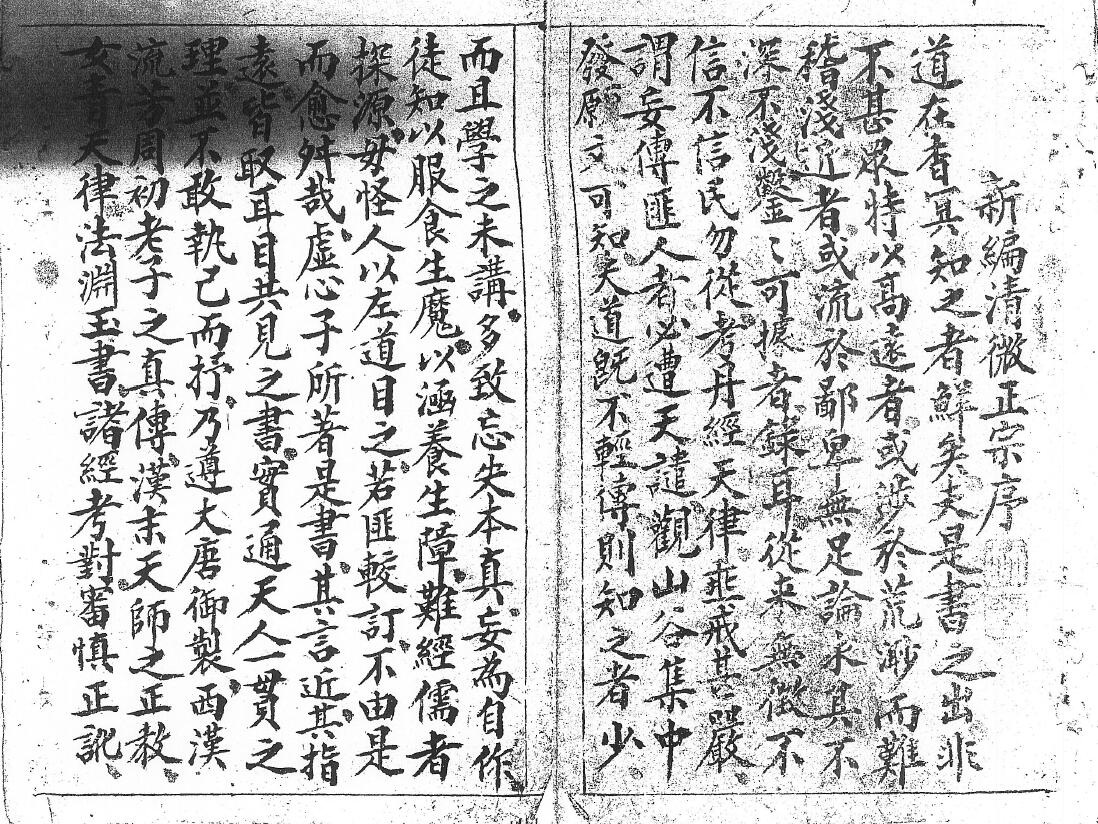 新編清微正宗序
道在杳冥知之者鮮矣夫是書之出非
不甚眾特以高遠者或涉於荒渺而難
稽淺近者或流於鄙卑無足論求其不
深不淺鑿〻可據者錄耳從来無徵不
信不信民勿從考丹經天律垂戒甚嚴
謂妄傳匪人者必遭天譴觀山谷集中
發願文可知夫道既不輕傳則知之者少
而且學之未講多致忘失本真妄為自作
徒知以服食生魔以涵養生障難經儒者
探源毋怪人以左道目之若匪較訂不由是
而愈舛哉虛心子所著是書其言近其指
遠皆取耳目共見之書實通天人一貫之
理並不敢執己而抒乃遵大唐御製西漢
流芳周初老子之真傳漢末天師之正教
女青天律法淵玉書諸經考對審慎正訛